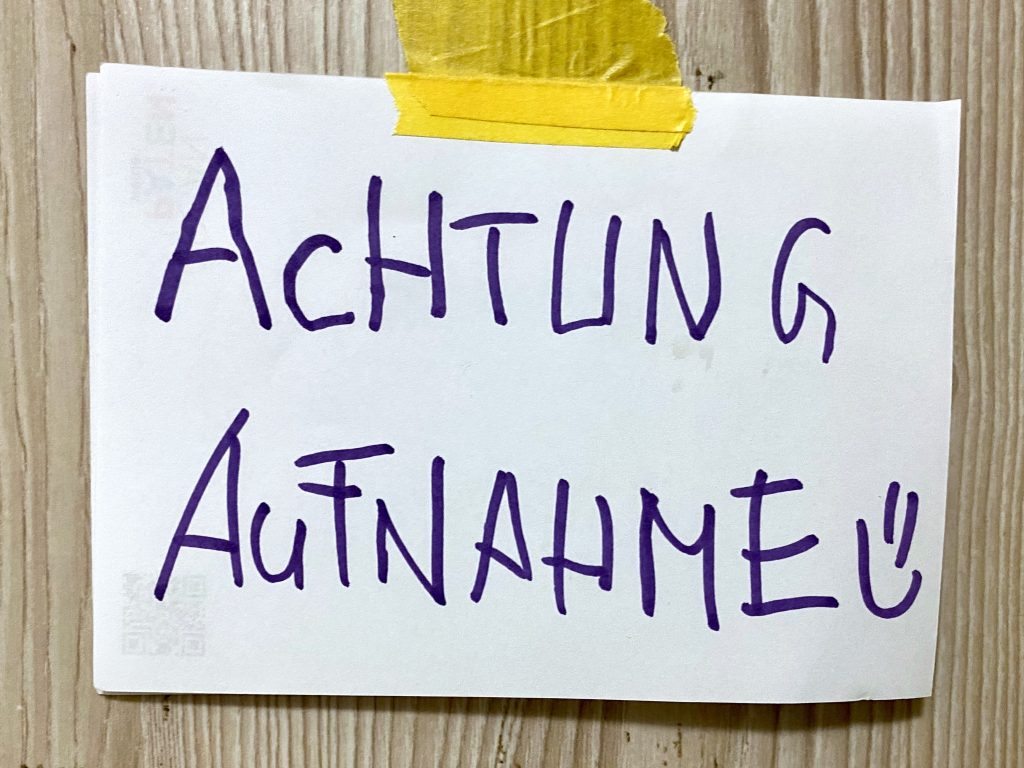 ACHTUNG
AUFNAHME